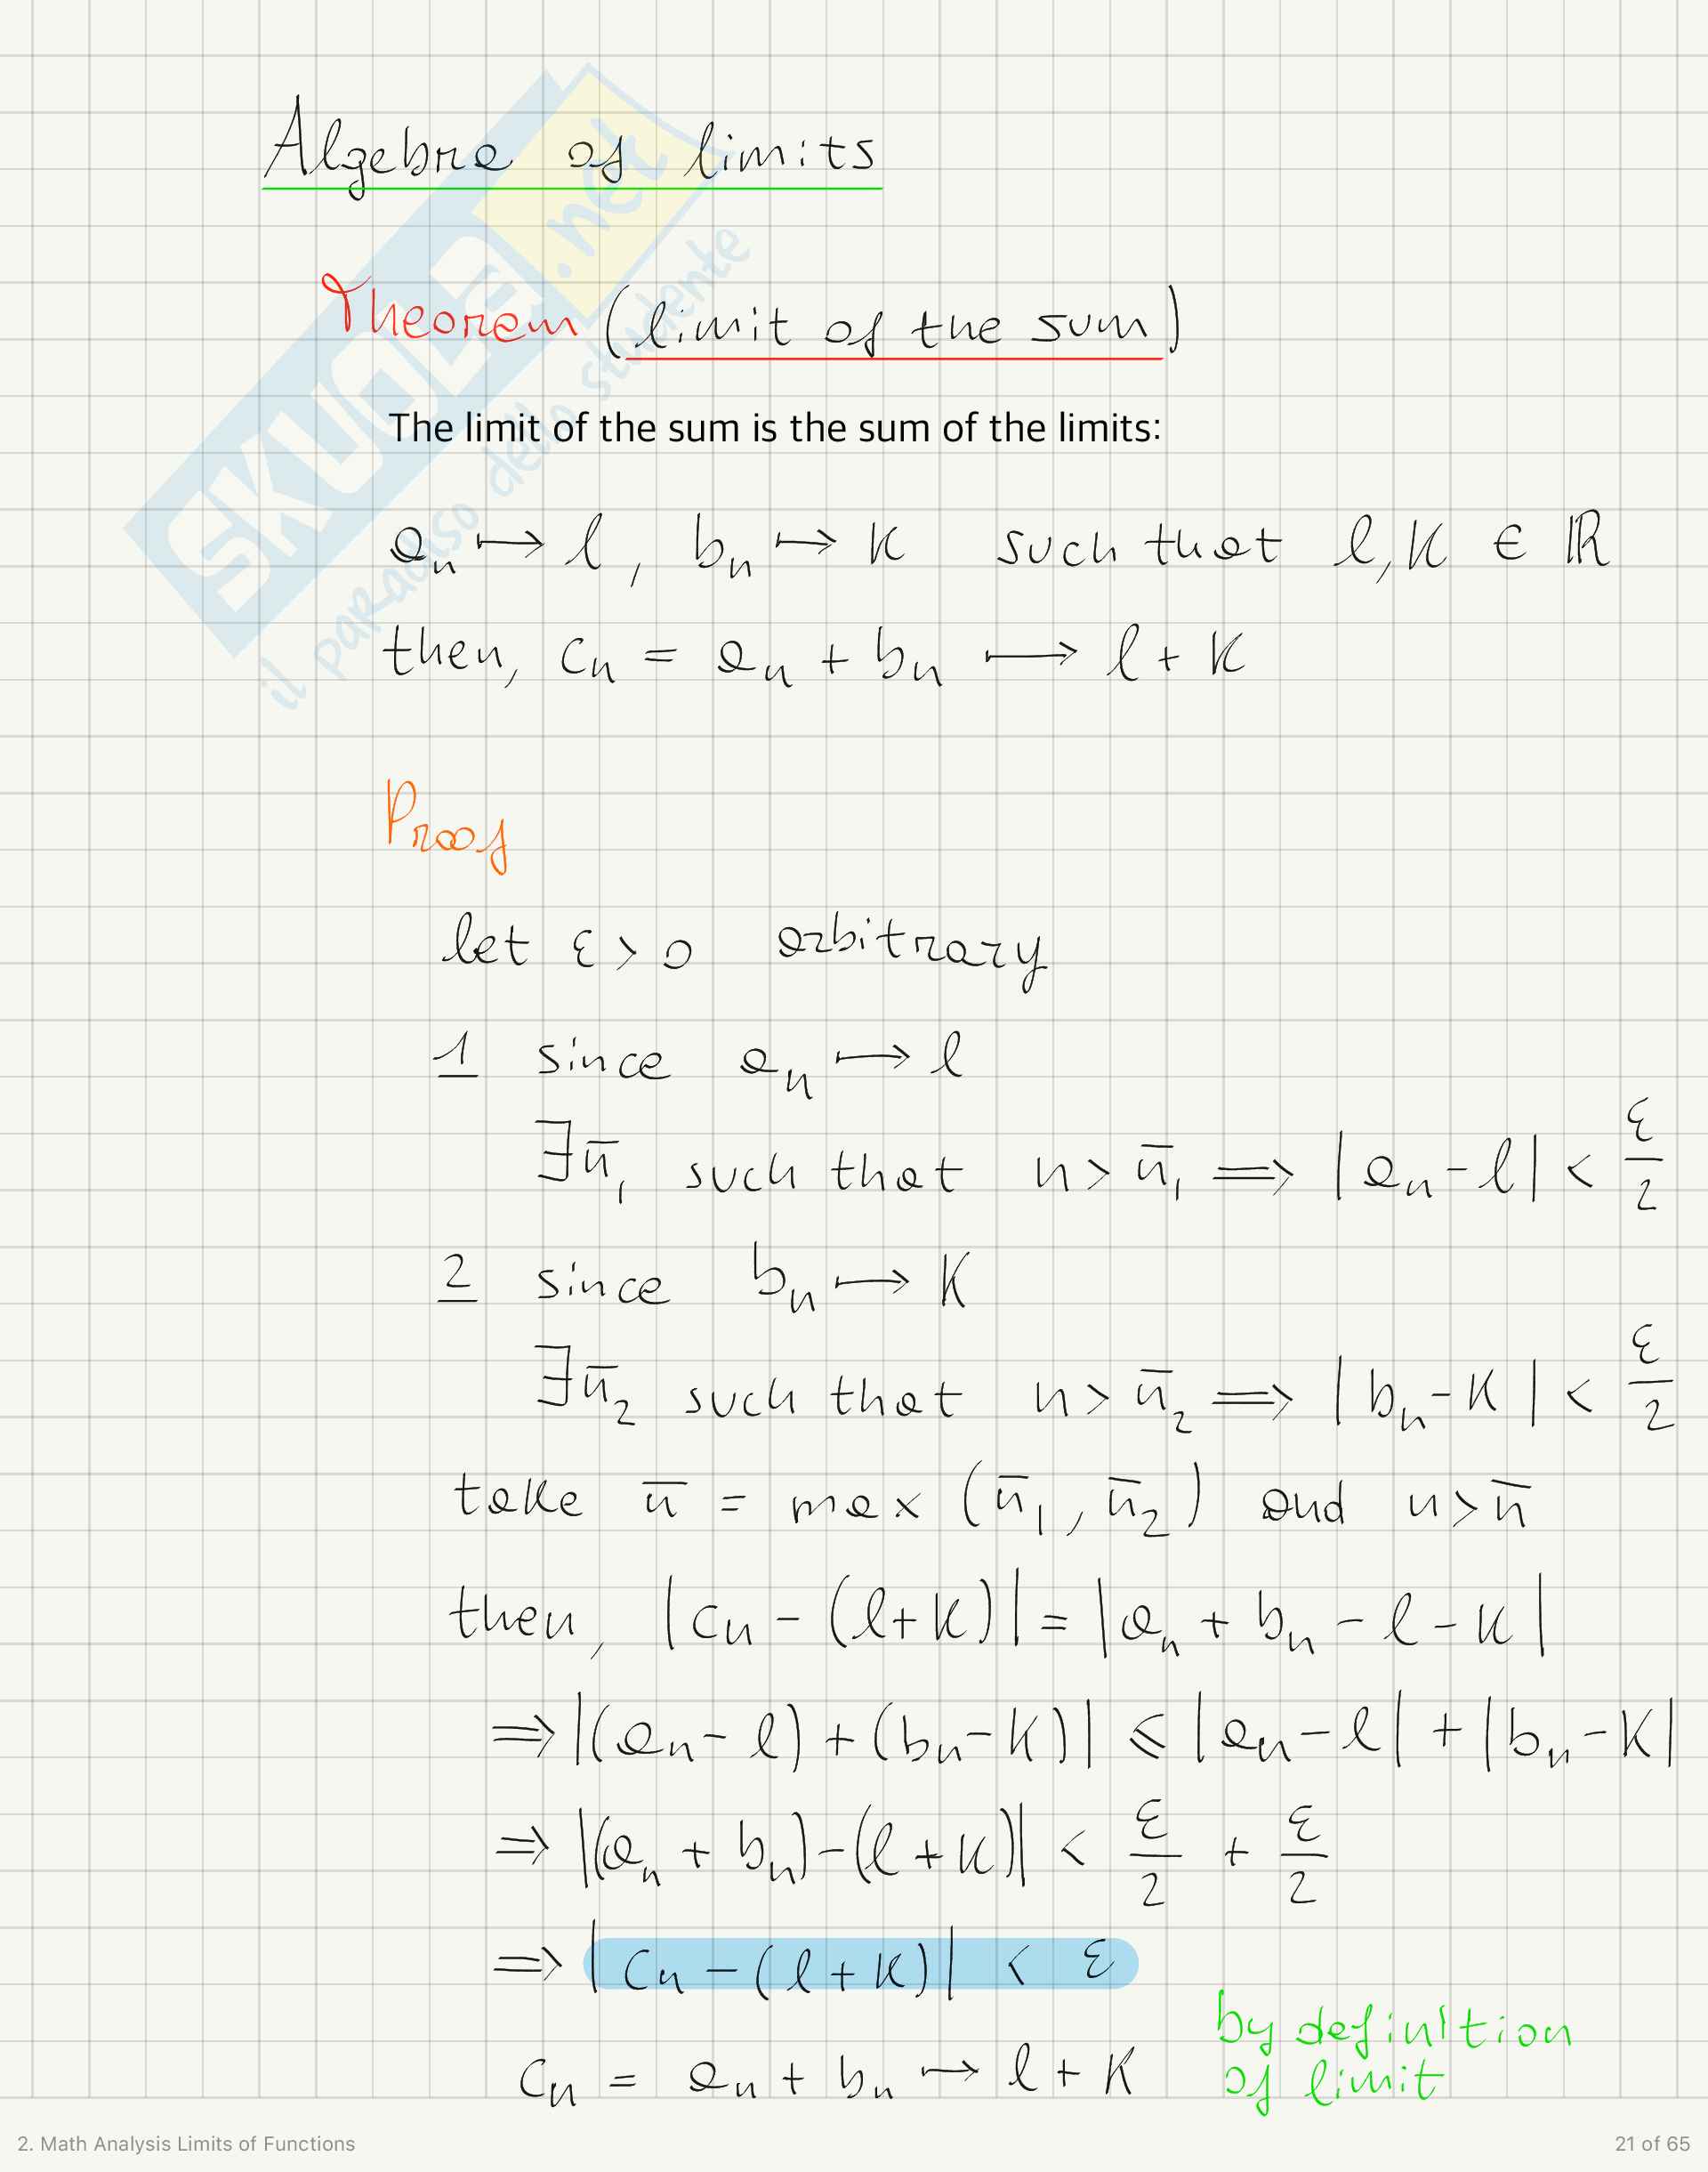 Algebra of limits
SKUOLA.net
il paradiso dello studente
Theorem (limit of the sum)
The limit of the sum is the sum of the limits:
aₙ ↦ l, bₙ ↦ K such that l, K ∈ ℝ
then, cₙ = aₙ + bₙ ⟼ l + K
Proof
let ε > 0 arbitrary
1 since aₙ ⟼ l
∃n̄₁ such that n > n̄₁ ⟹ |aₙ - l| < ε/2
2 since bₙ ⟼ K
∃n̄₂ such that n > n̄₂ ⟹ |bₙ - K| < ε/2
take n̄ = max (n̄₁, n̄₂) and n > n̄
then, |cₙ - (l+K)| = |aₙ + bₙ - l - K|
⟹ |(aₙ - l) + (bₙ - K)| ⩽ |aₙ - l| + |bₙ - K|
⟹ |(aₙ + bₙ) - (l + K)| < ε/2 + ε/2
⟹ |cₙ - (l + K)| < ε
cₙ = aₙ + bₙ ↦ l + K
by definition
of limit
2. Math Analysis Limits of Functions
21 of 65